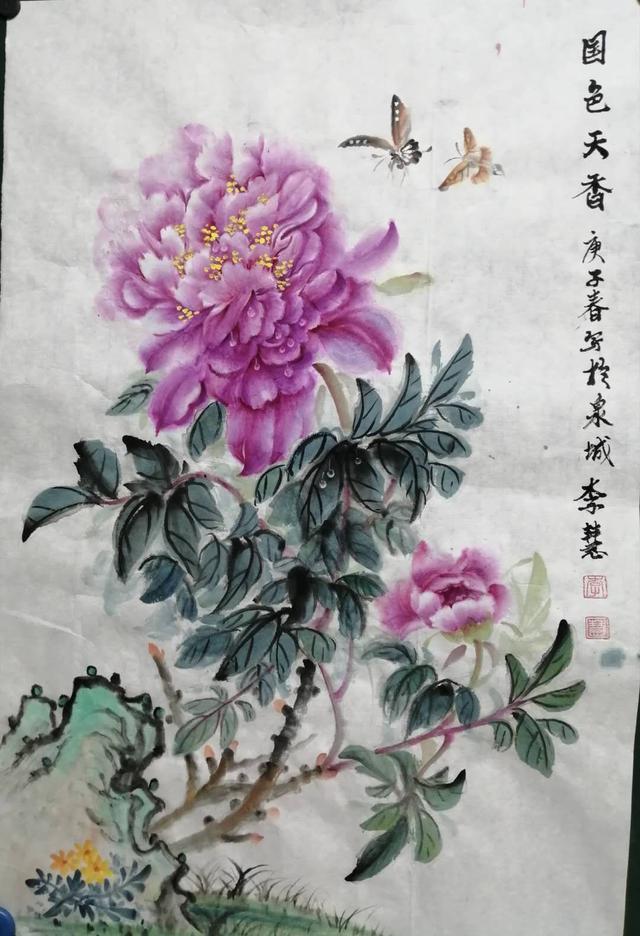 国色天香 庚子春写於泉城 李慧